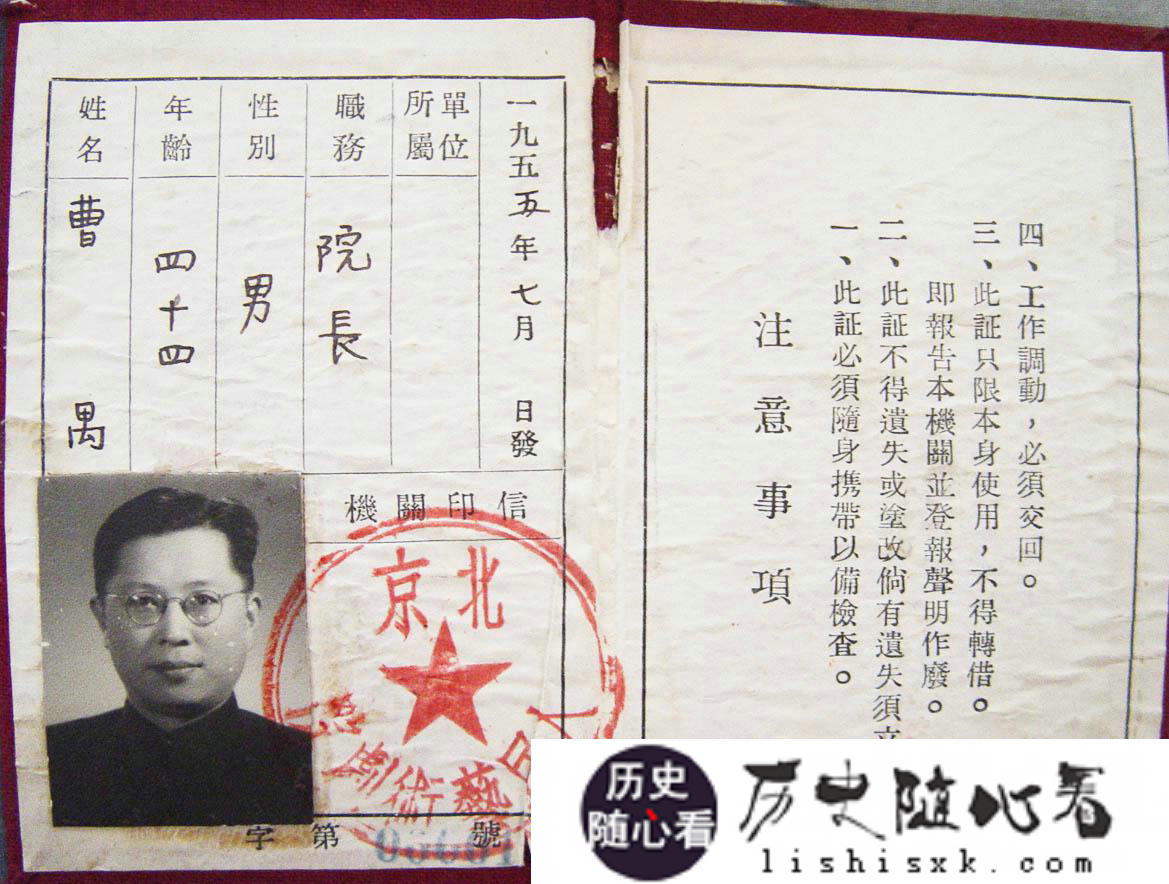 姓名 曹禺
年齡 四十四
性別 男
職務 院長
所屬單位
一九五五年七月 日發
機關印信
北京
人民藝術劇院
字第 號
注意事項
一、此証必須隨身携帶以備檢查。
二、此証不得遺失或塗改倘有遺失須立
即報告本機關並登報聲明作廢。
三、此証只限本身使用，不得轉借。
四、工作調動，必須交回。
历史
随心看
历史随心看
lishisxk.com